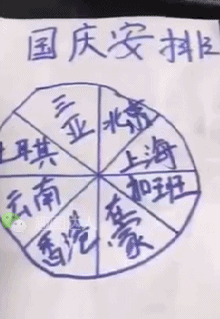 国庆安排
三亚
北京
上海
加班
在家
香港
云南
土耳其